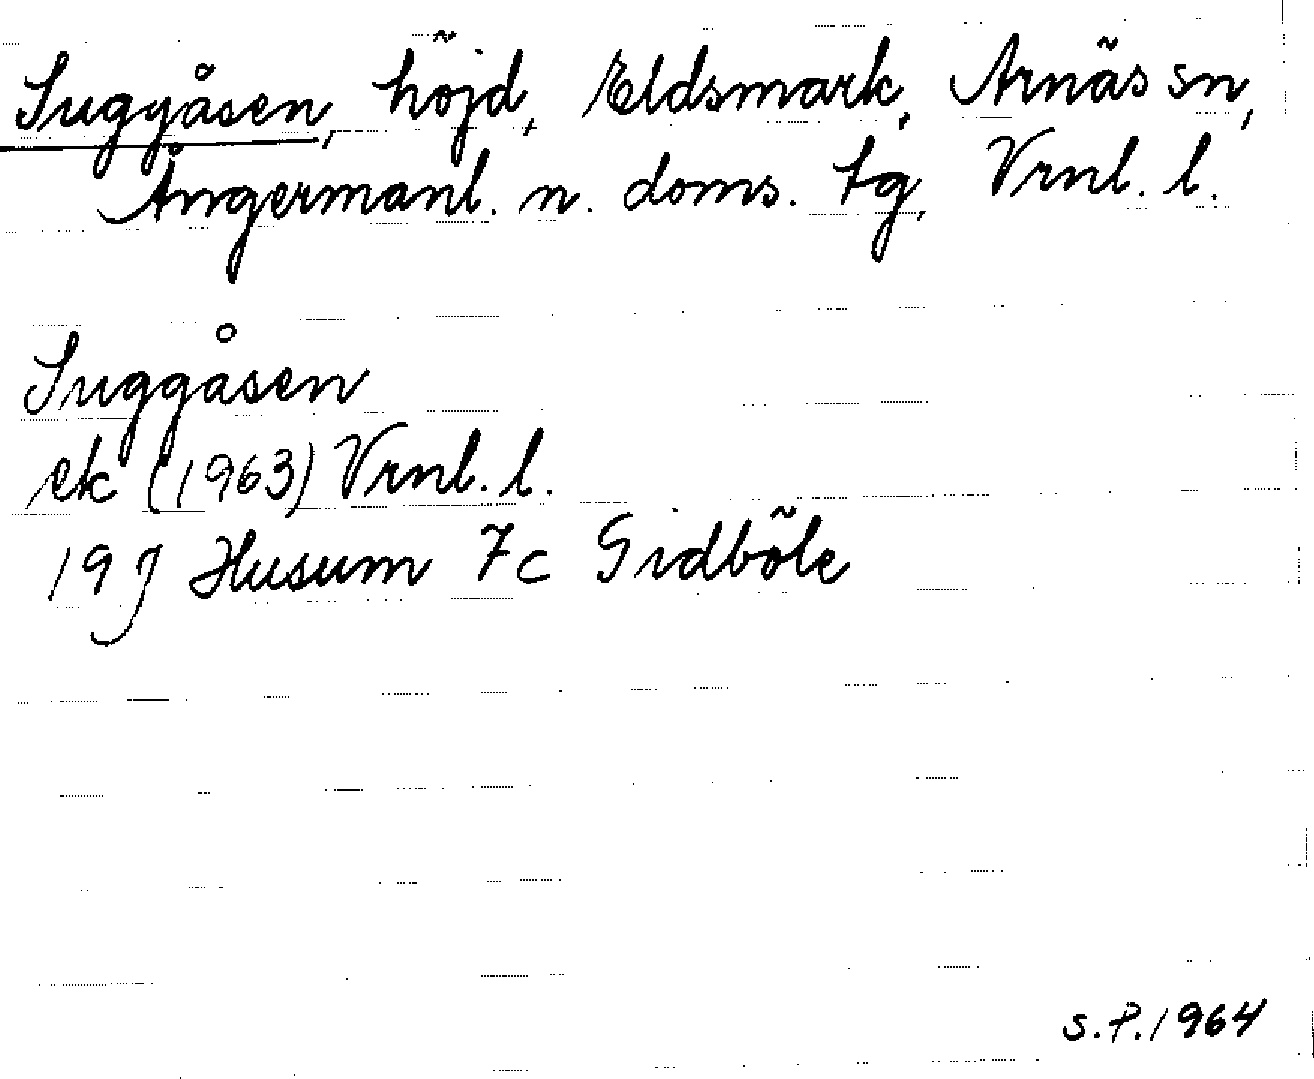 Suggåsen, höjd, Eldsmark, Arnäs sn,
Ångermanl. n. doms. tg, Vrnl. l.
Suggåsen
ek (1963) Vrnl. l.
19J Husum 7c Gidböle
S.P. 1964